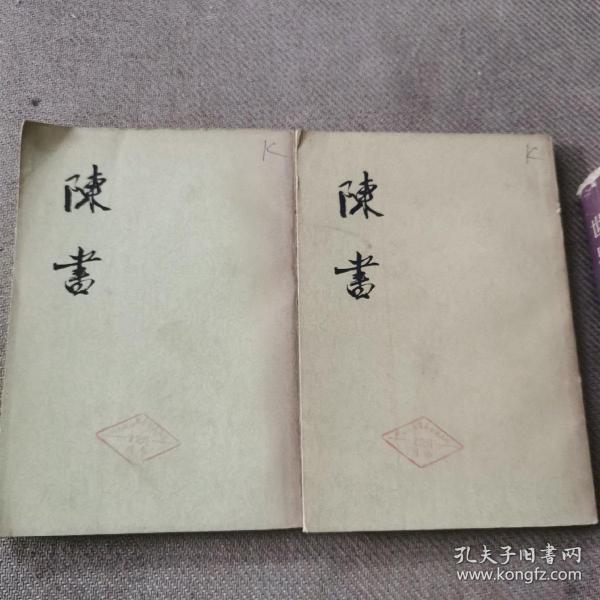 陳書
K
陳書
K
世
孔夫子旧书网
www.kongfz.com